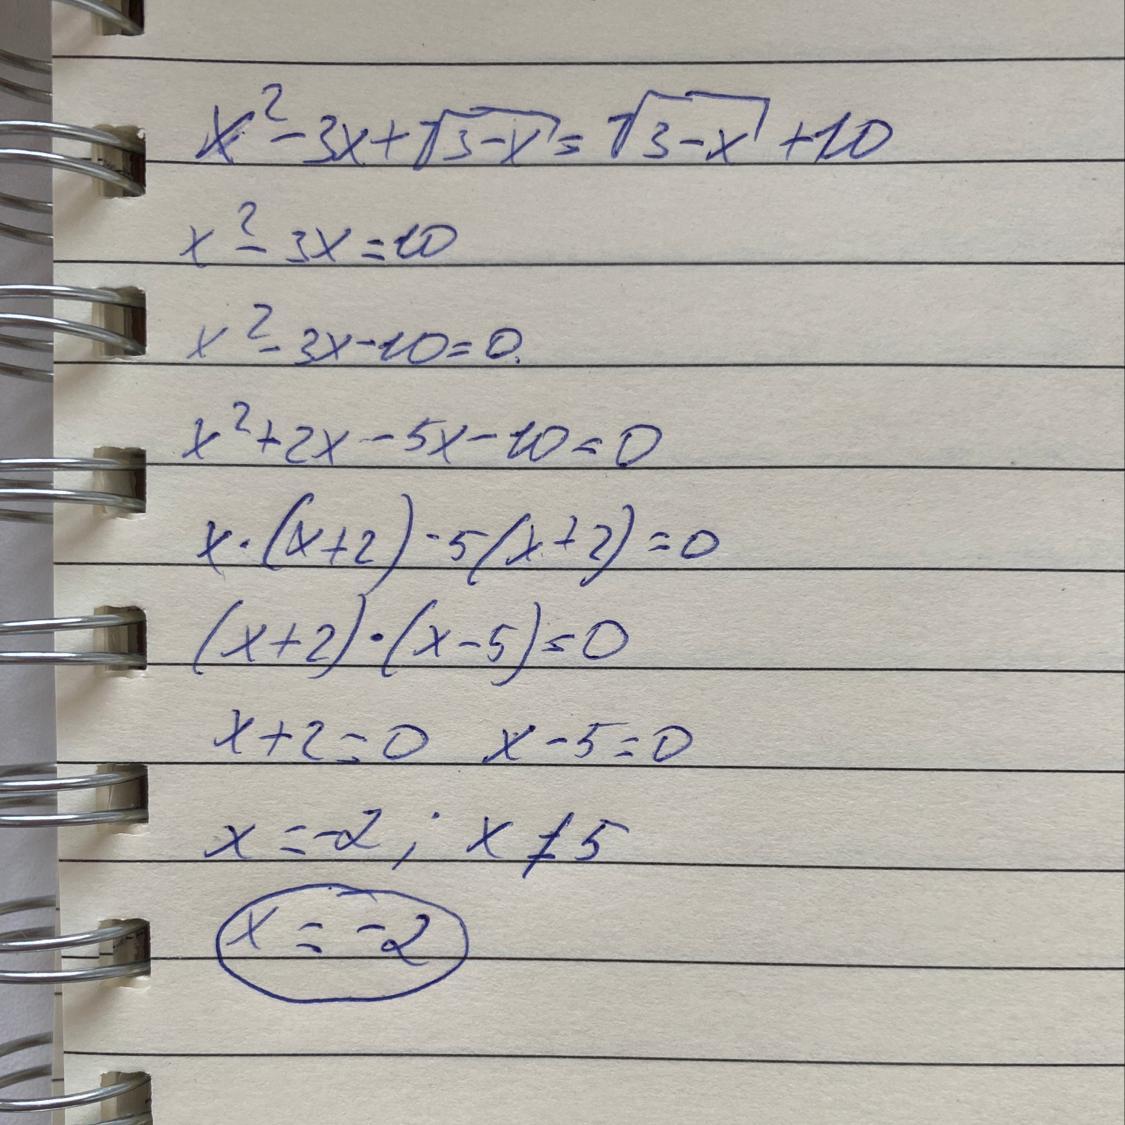 x² - 3x + √(3-x) = √(3-x) + 10
x² - 3x = 10
x² - 3x - 10 = 0.
x² + 2x - 5x - 10 = 0
x · (x+2) - 5(x+2) = 0
(x+2) · (x-5) = 0
x+2=0 x-5=0
x = -2 ; x ≠ 5
x = -2